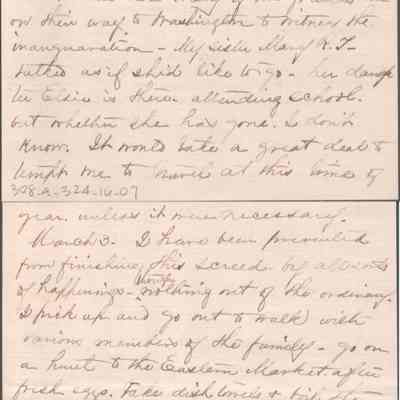 on their way to Washington to witness the
inauguration - My sister Mary R. T-
talked as if she'd like to go - her daugh
ter Elsie is there, attending school.
but whether she has gone, I don't
know. It would take a great deal to
tempt me to travel at this time of
328-a-324-16-07
year, unless it were necessary.
March 3. I have been prevented
from finishing this screed by all sorts
of happenings - though nothing out of the ordinary.
I pick up and go out to walk with
various members of the family - go on
a hunt to the Eastern Market after
fresh eggs. Take dish towels &